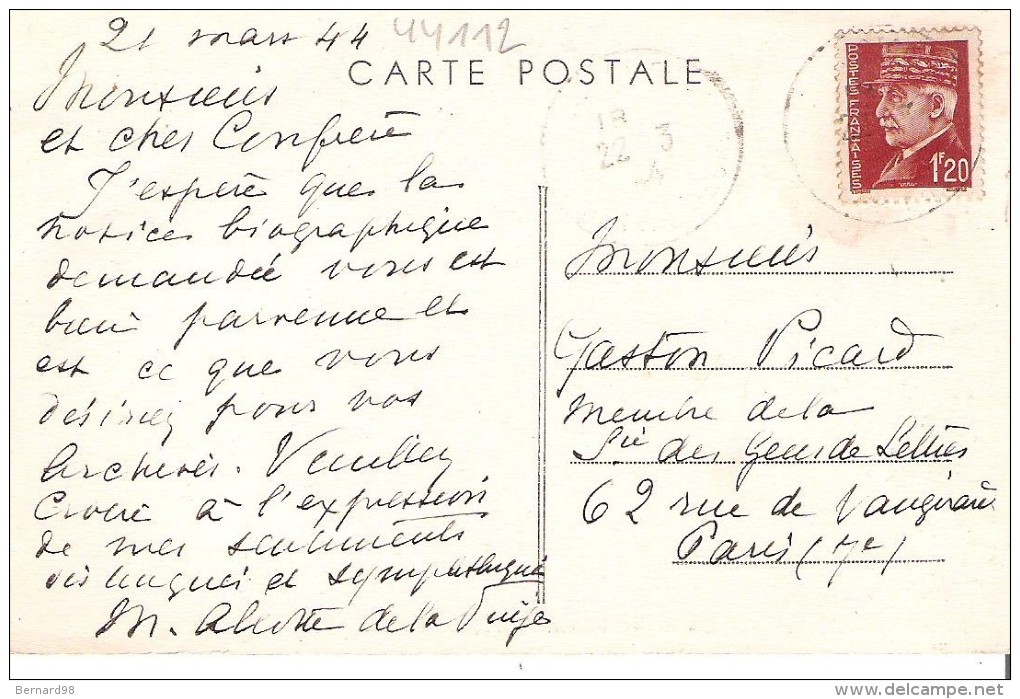 21 mars 44
44112
CARTE POSTALE
Monsieur
et cher Confrère
J'espère que la
notice biographique
demandée vous est
bien parvenue et
est ce que vous
désirez pour vos
archives. Veuillez
Croire à l'expression
de mes sentiments
distingués et sympathiques
M. de la
18
22 3
POSTES FRANÇAISES
1F20
Monsieur
Gaston Picard
Membre de la
Sté des Gens de Lettres
62 rue de Vaugirard
Paris (7e)
Bernard98
www.delcampe.net